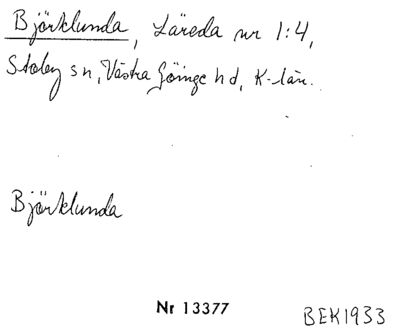 Björklunda, Läreda nr 1:4,
Stoby sn, Västra Göinge hd, K-län.
Björklunda
Nr 13377
BEK1933